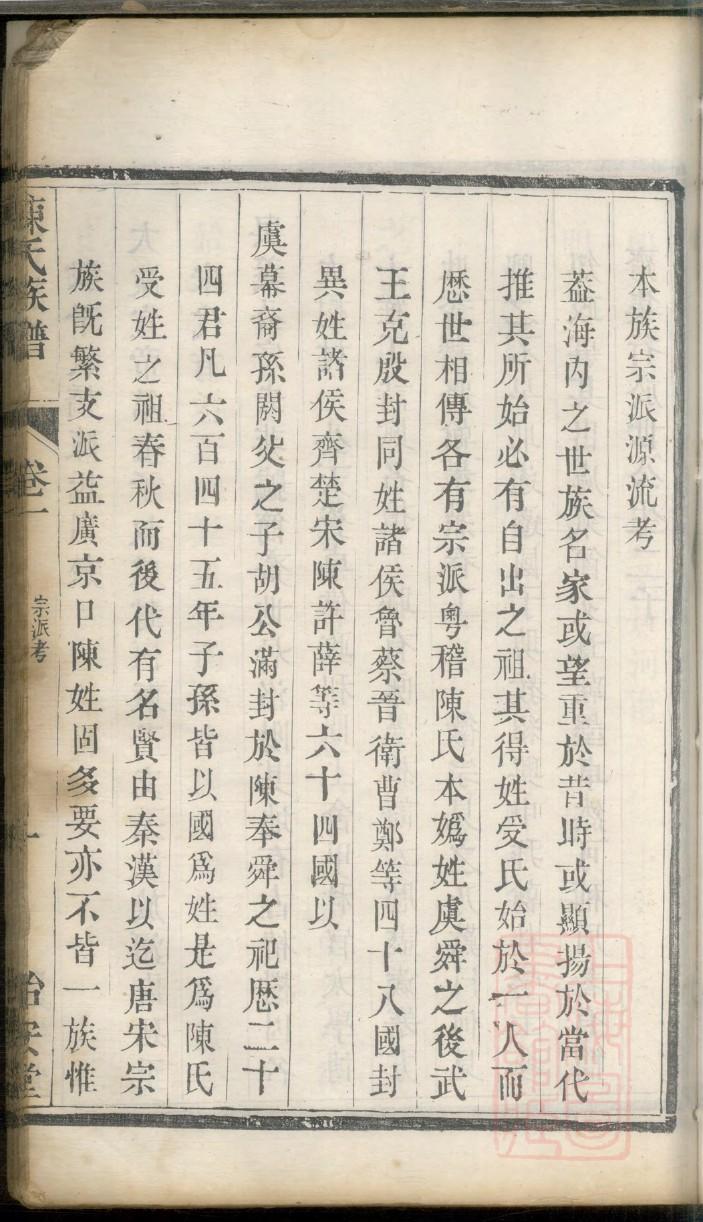 本族宗派源流考
葢海內之世族名家或望重於昔時或顯揚於當代
推其所始必有自出之祖其得姓受氏始於一人而
歷世相傳各有宗派粵稽陳氏本嬀姓虞舜之後武
王克殷封同姓諸侯魯蔡晉衛曹鄭等四十八國封
異姓諸侯齊楚宋陳許薛等六十四國以
虞幕裔孫閼父之子胡公滿封於陳奉舜之祀歷二十
四君凡六百四十五年子孫皆以國爲姓是爲陳氏
受姓之祖春秋而後代有名賢由秦漢以迄唐宋宗
族旣繁支派益廣京口陳姓固多要亦不皆一族惟
陳氏族譜
卷一
宗派考
一
怡安堂